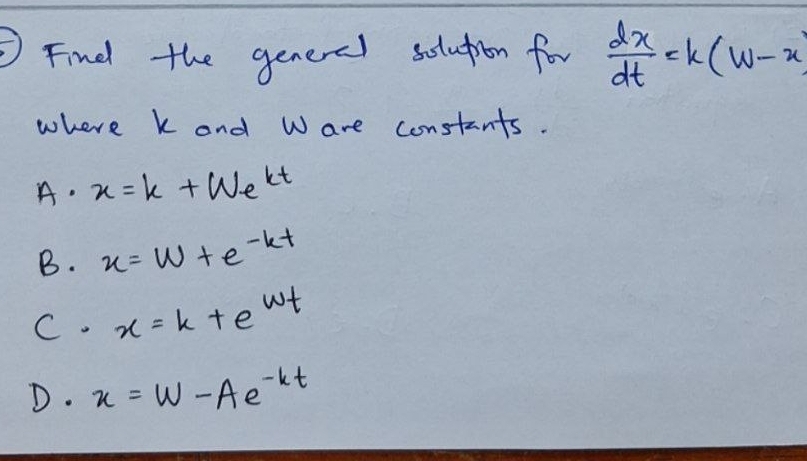 5 Find the general solution for dx/dt = k(W-x)
where k and W are constants.
A. x = k + We^kt
B. x = W + e^-kt
C. x = k + e^Wt
D. x = W - Ae^-kt